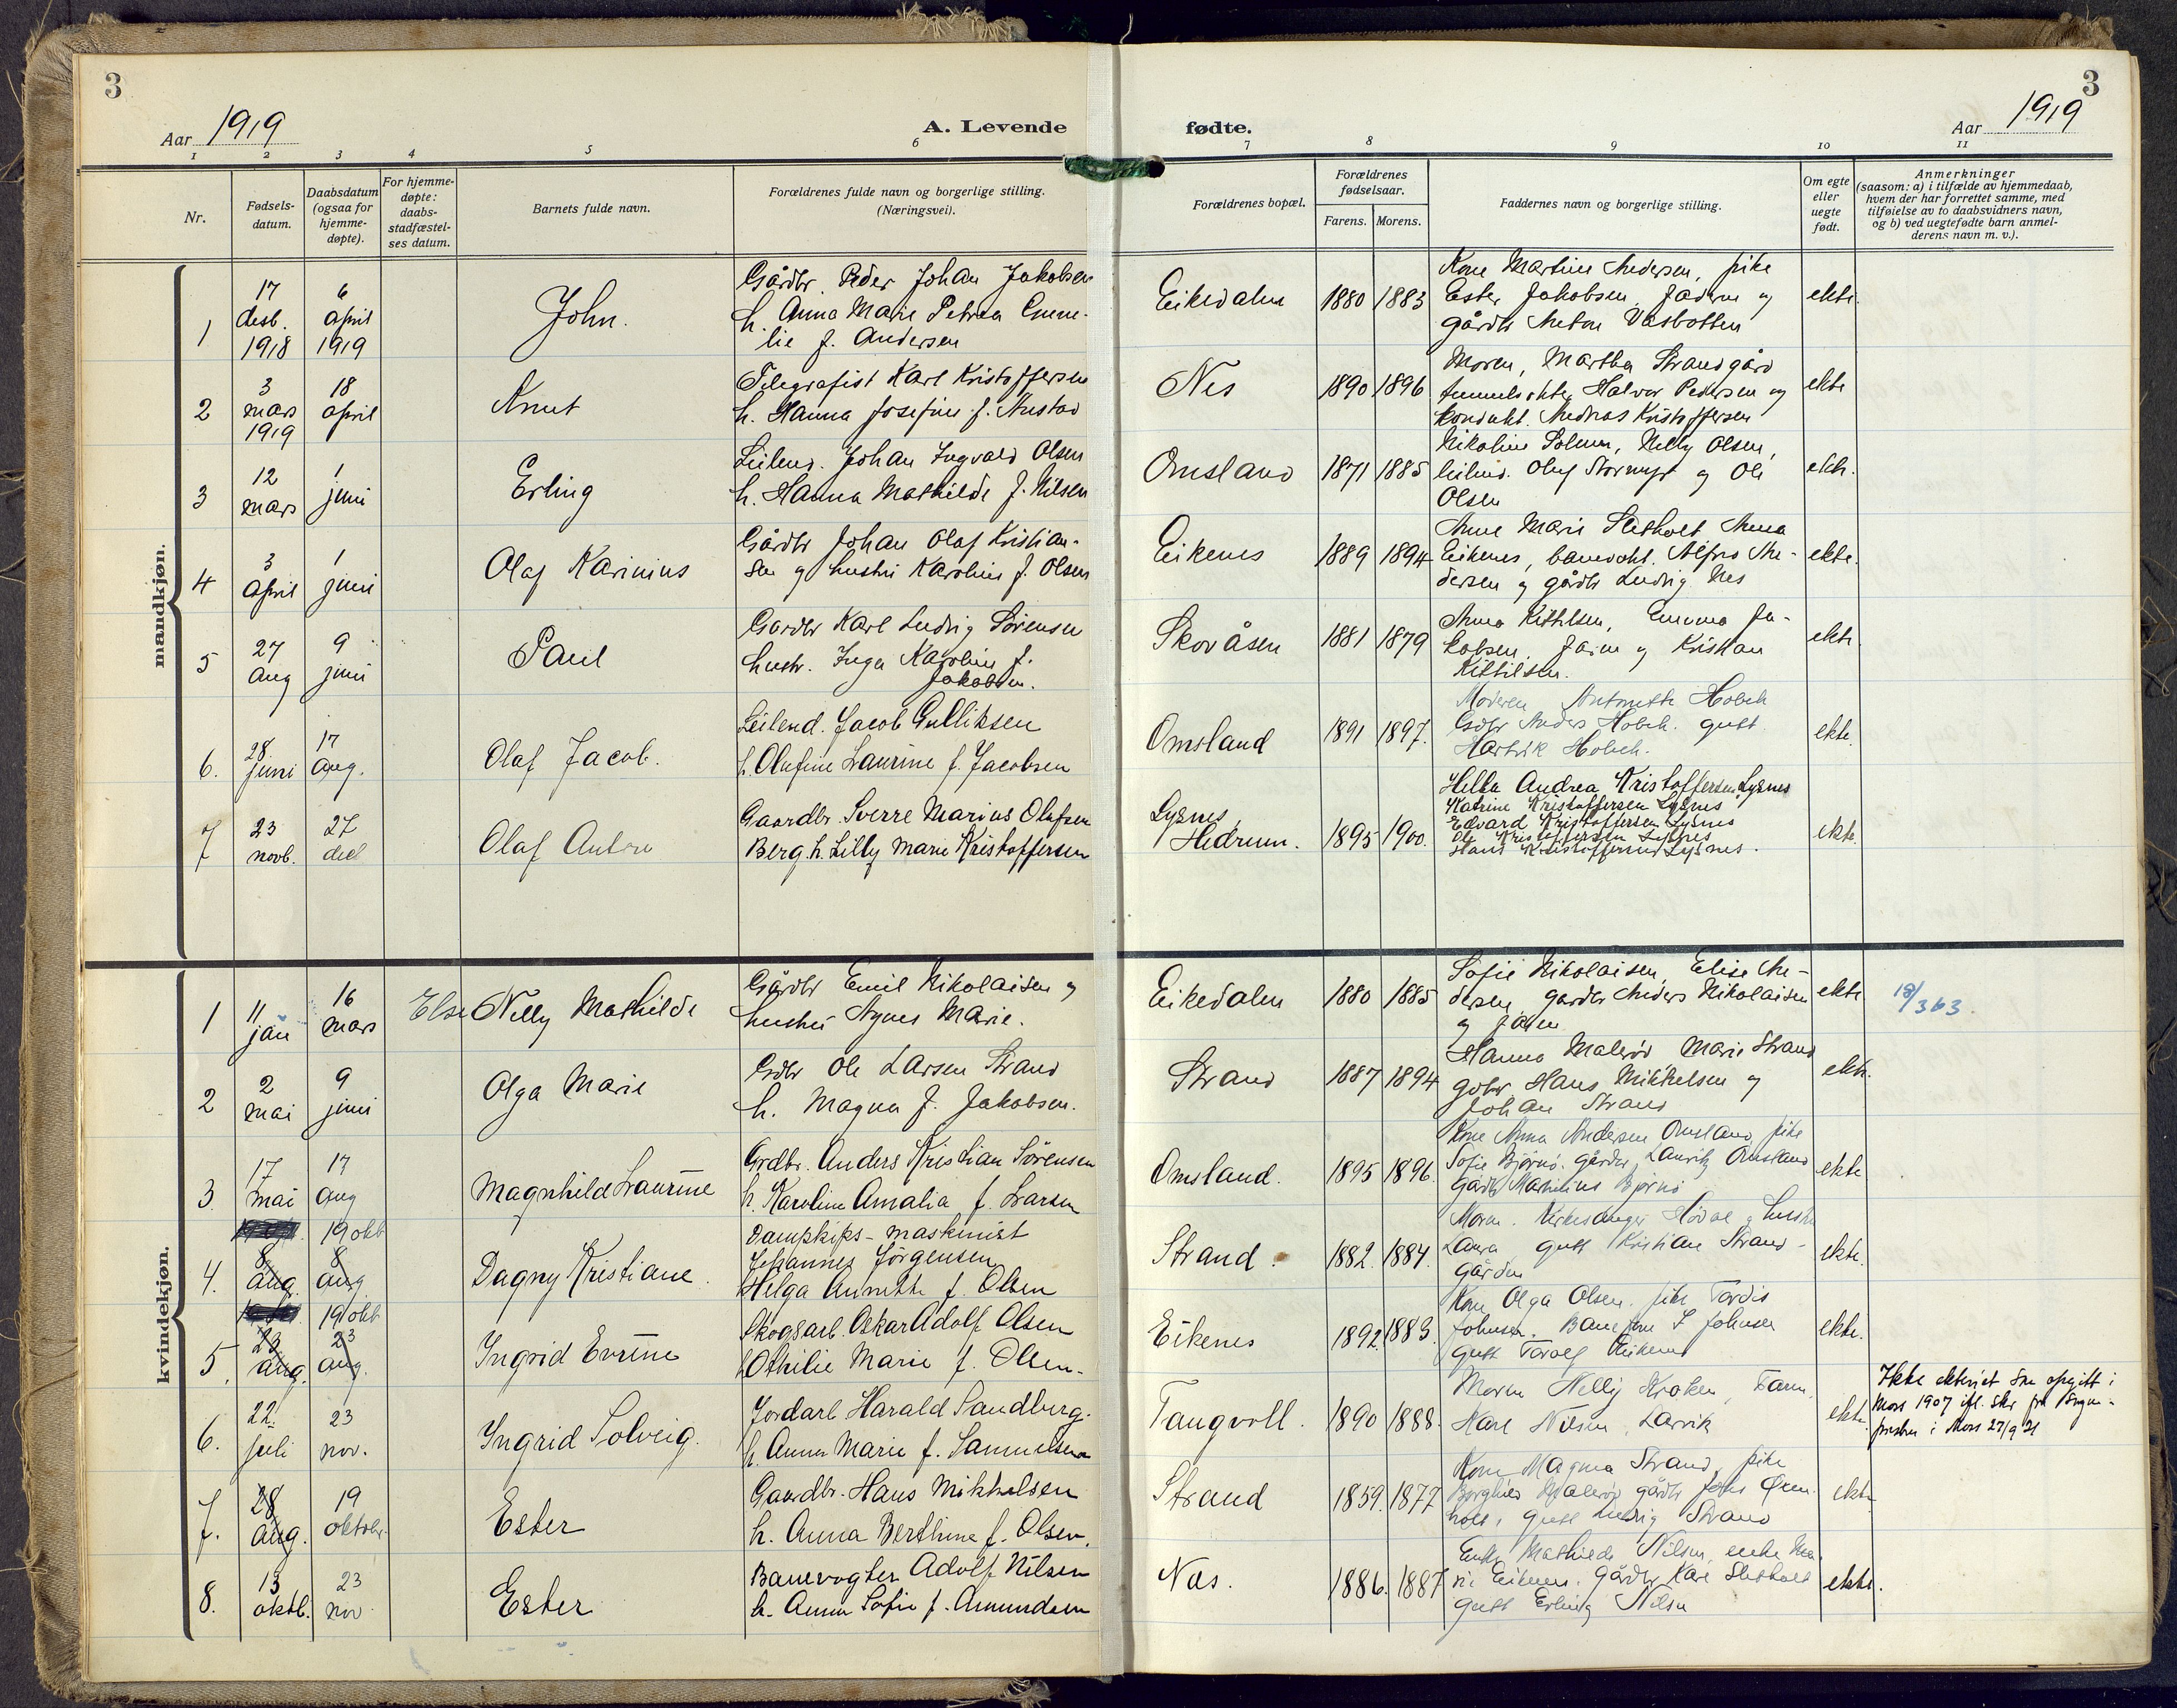 3
Aar 1919
A. Levende
1 2 3 4 5 6
Nr.
Fødsels-
datum.
Daabsdatum
(ogsaa for
hjemme-
døpte).
For hjemme-
døpte:
daabs-
stadfæstel-
ses datum.
Barnets fulde navn.
Forældrenes fulde navn og borgerlige stilling.
(Næringsvei).
mandkjøn.
1
17
desb.
1918
6
april
1919
John.
Gårdbr. Peder Johan Jakobsen
h. Anna Marie Petrea Emme-
lie f. Andersen
2
3
mars
1919
18
april
Knut
Telegrafist Karl Kristoffersen
h. Hanna Josefine f.
3
12
mars
1
juni
Erling
Leilend. Johan Ingvald Olsen
h. Hanna Mathilde f. Nilsen
4
3
april
1
juni
Olaf Karinius
Gårdbr Johan Olaf Kristian-
sen og hustru Karoline f. Olsen
5
27
aug
9
juni
Paul
Gardbr Karl Ludvig Sørensen
hustr. Inga Karoline f.
Jakobsen.
6.
28
juni
17
aug.
Olaf Jacob.
Leilend. Jacob Gulliksen
h. Olufine Laurine f. Jacobsen
7
23
novb.
27
dec
Olaf Anton
Gaardbr. Sverre Marius Olafsen
Berg. h. Lilly Marie Kristoffersen
kvindekjøn.
1
11
jan
16
mars
Else Nelly Mathilde
Gårdbr Emil Nikolaisen og
hustru Agnes Marie.
2
2
mai
9
juni
Olga Marie
Gdbr Ole Larsen Strand
h. Magna f. Jakobsen.
3.
17
mai
17
aug
Magnhild Laurine
Grdbr. Anders Kristian Sörensen
h. Karoline Amalia f. Larsen
4.
8
aug.
19 okt
8
aug.
Dagny Kristiane.
Dampskips-maskinist
Johannes Jørgensen
Helga Annette f. Olsen
5.
23
aug.
19 okt
23
aug.
Ingrid Evrine
Skogsarb. Oskar Adolf Olsen
h Othilie Marie f. Olsen.
6.
22.
juli
23
nov.
Ingrid Solveig.
Jordarb Harald Sandberg.
h. Anna Marie f. Samuelsen
7.
28
aug.
19
oktober
Ester
Gaardbr. Hans Mikkelsen
h. Anna Berthine f. Olsen.
8.
13
oktb.
23
nov
Ester
Banevogter Adolf Nilsen
h. Anna Sofie f. Amundsen
3
fødte.
Aar 1919
7 8 9 10 11
Forældrenes bopæl.
Forældrenes
fødselsaar.
Farens. Morens.
Faddernes navn og borgerlige stilling.
Om egte
eller
uegte
født.
Anmerkninger
(saasom: a) i tilfælde av hjemmedaab,
hvem der har forrettet samme, med
tilføielse av to daabsvidners navn,
og b) ved uegtefødte barn anmel-
derens navn m. v.).
Eikedalen 1880 1883
Kone Martine Andersen, pike
Ester Jakobsen, Faderen og
gårdbr Anton Vasbotten
ekte.
Nes 1890 1896
Moren, Martha Strandgård
Halvor Pedersen og
kondukt. Andreas Kristoffersen
ekte
Omsland 1871 1885
Nikoline Solum, Nelly Olsen,
leilend. Oluf Stormyr og Ole
Olsen
ekte.
Eikenes 1889 1894
Anne Marie Sletholt Anna
Eikenes, banevokt. Alfred An-
dersen og gårdbr Ludvig Nes
ekte.
Skovåsen 1881 1879
Anna Kittilsen, Emma Ja-
kobsen, Faren og Kristian
Kittilsen.
ekte
Omsland 1891 1897.
Moderen Antonette Holseth
Gdbr Anders gutt
ekte.
Lysnes,
Hedrum. 1895 1900.
Helba Andrea Kristoffersen Lysnes
Katrine Kristoffersen Lysnes
Edvard Kristoffersen Lysnes
Ole Kristoffersen Lysnes
Hans Kristoffersen Lysnes.
ekte.
Eikedalen 1880 1885
Sofie Nikolaisen, Elise An-
dersen, gardbr Anders Nikolaisen
og faren
ekte
18/363.
Strand 1887 1894
Hanna Malerød Marie Strand
gdbr Hans Mikkelsen og
Johan Strand
ekte.
Omsland. 1895 1896.
Kone Anna Andersen Omsland, pike
Sofie Bjørnø. gårdbr Lauritz Omsland
Gårdbr Mathilius Bjørnø
ekte
Strand. 1882. 1884.
Moren. Kirkesanger og hustru
Laura, gutt Kristian Strand-
gården
ekte.
Eikenes 1892. 1883.
Kone Olga Olsen. pike Tordis
Johnsen. J Johnsen
gutt Torolf Eikenes
ekte.
Tangvoll. 1890 1888.
Moren Nelly Kroken, Faren,
Karl Nilsen, Larvik
ekte
Ikke ekteviet som opgitt i
Moss 1907 ifl. skr fra Sogne-
presten i Moss 27/9 21
Strand 1859. 1877
Kone Magna Strand, pike
Borghild Malerød gårdbr
holt, gutt Ludvig Strand
ekte
Nas. 1886. 1887
Enke Mathilde Nilsen, enke Ma-
rie Eikenes. Gårdbr Karl Sletholt
gutt Erling Nilsen
ekte.